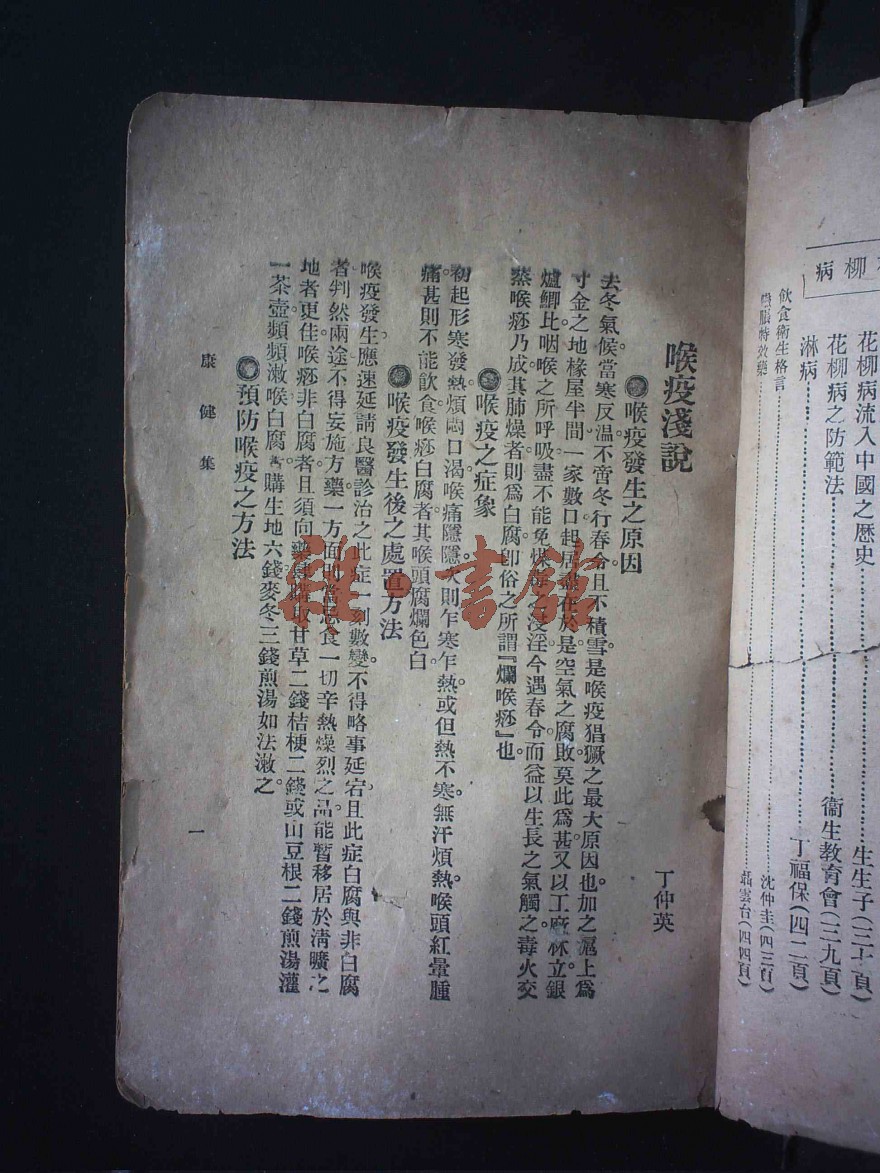 病
花柳病流入中國之歷史⋯⋯生生子(三十頁)
花柳病之防範法⋯⋯衞生教育會(三九頁)
淋病⋯⋯丁福保(四二頁)
飲食衛生格言⋯⋯沈仲圭(四三頁)
特效藥⋯⋯聶雲台(四四頁)
喉疫淺說
丁仲英
喉疫發生之原因
去冬氣候當寒反温。不啻冬行春令。且不積雪。是喉疫猖獗之最大原因也。加之滬上爲
寸金之地。椽屋半間。一家數口。起居盡在於是。空氣之腐敗。莫此爲甚。又以工廠林立。銀
爐鯽比。咽喉之所呼吸。盡不能免煤之浸淫。今遇春令。而益以生長之氣觸之。毒火交
蒸。喉痧乃成。其肺燥者。則爲白腐。卽俗之所謂『爛喉痧』也。
喉疫之症象
初起形寒發熱。煩悶口渴。喉痛隱隱。次則乍寒乍熱。或但熱不寒。無汗煩熱。喉頭紅暈腫
痛。甚則不能飮食。喉痧白腐者。其喉頭腐爛色白。
喉疫發生後之處置方法
喉疫發生。應速延請良醫診治之。此症一刻數變。不得略事延宕。且此症白腐與非白腐
者。判然兩途。不得妄施方藥。一方面卽當忌食一切辛熱燥烈之品。能暫移居於清曠之
地者更佳。喉痧非白腐者。且須向藥肆購取甘草二錢桔梗二錢。或山豆根二錢。煎湯灌
一茶壺。頻頻漱喉。白腐購生地六錢麥冬三錢。煎湯如法漱之。
預防喉疫之方法
康健集
一
雜·書館